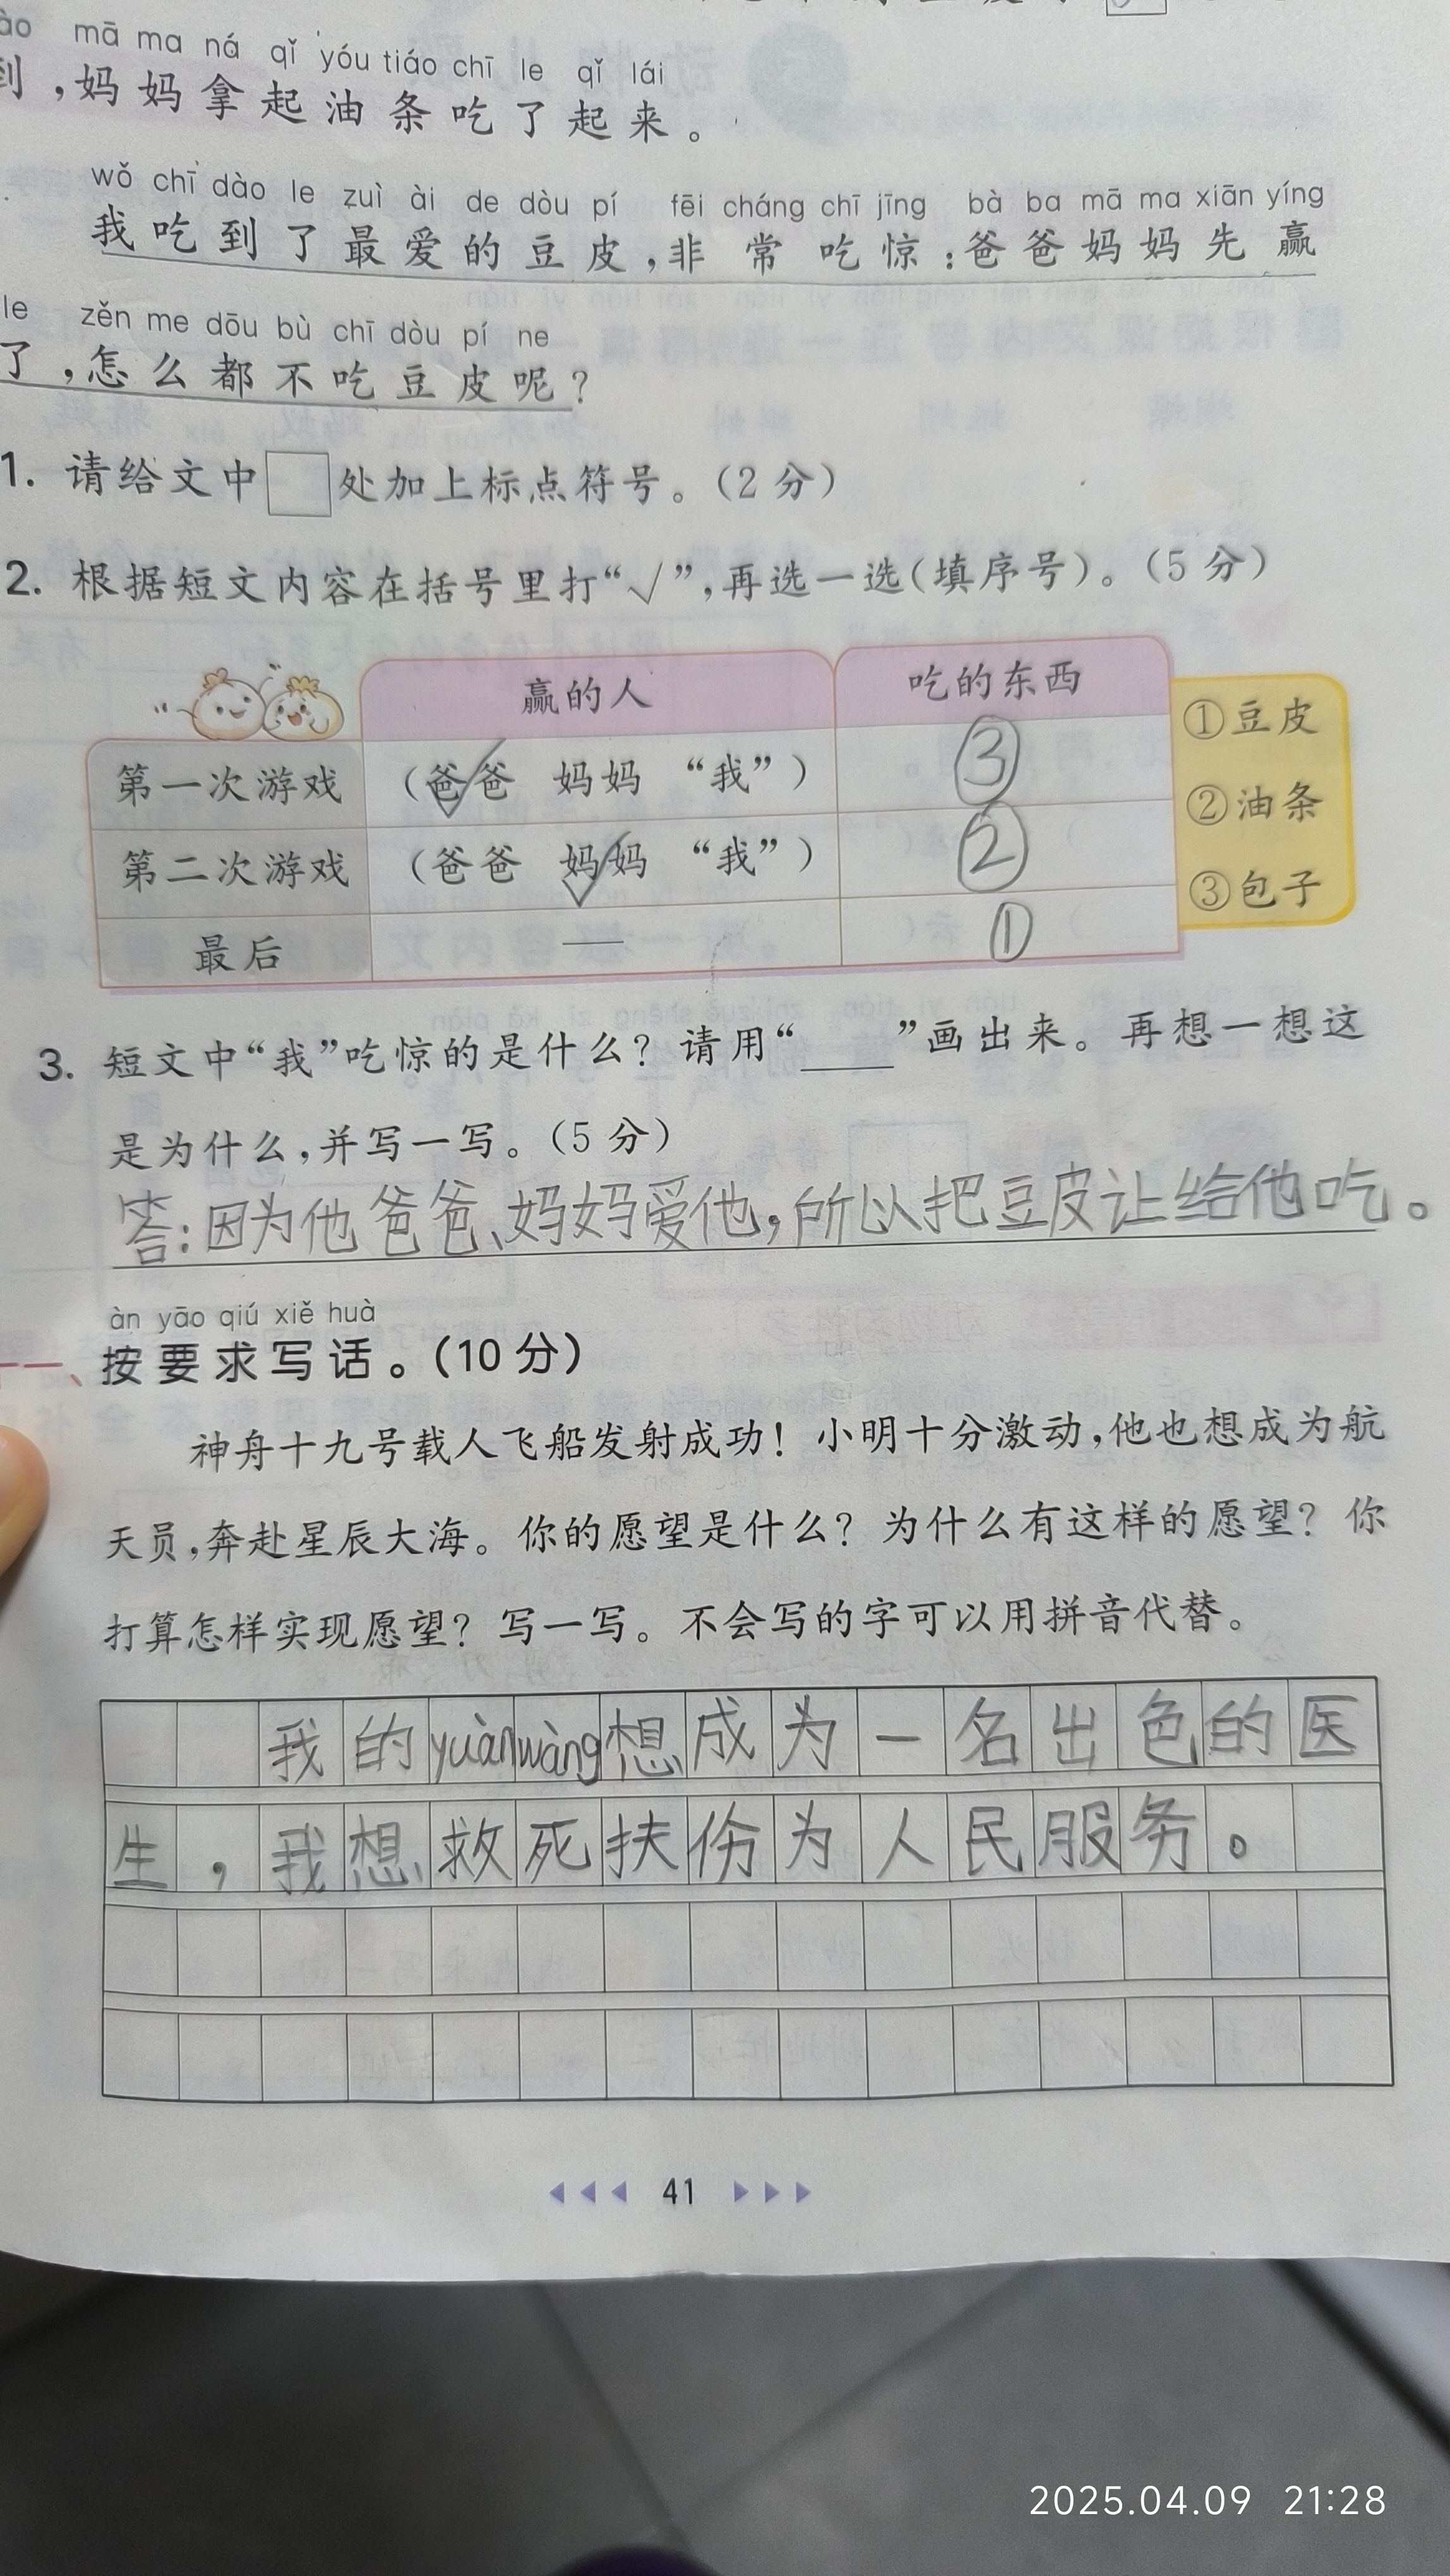 ào mā ma ná qǐ yóu tiáo chī le qǐ lái
到，妈妈拿起油条吃了起来。
wǒ chī dào le zuì ài de dòu pí fēi cháng chī jīng bà ba mā ma xiān yíng
我吃到了最爱的豆皮，非常吃惊：爸爸妈妈先赢
le zěn me dōu bù chī dòu pí ne
了，怎么都不吃豆皮呢？
1. 请给文中□处加上标点符号。（2分）
2. 根据短文内容在括号里打“√”，再选一选（填序号）。（5分）
赢的人 吃的东西
第一次游戏 （爸爸 妈妈 “我”） ③
第二次游戏 （爸爸 妈妈 “我”） ②
最后 — ①
①豆皮
②油条
③包子
3. 短文中“我”吃惊的是什么？请用“____”画出来。再想一想这
是为什么，并写一写。（5分）
答：因为他爸爸、妈妈爱他，所以把豆皮让给他吃。
àn yāo qiú xiě huà
一、按要求写话。（10分）
神舟十九号载人飞船发射成功！小明十分激动，他也想成为航
天员，奔赴星辰大海。你的愿望是什么？为什么有这样的愿望？你
打算怎样实现愿望？写一写。不会写的字可以用拼音代替。
我的yuànwàng想成为一名出色的医
生，我想救死扶伤为人民服务。
41
2025.04.09 21:28